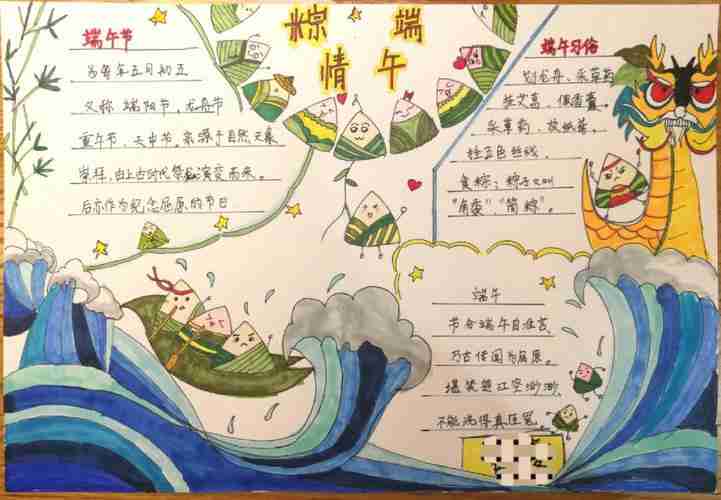 粽情端午
端午节
为每年五月初五
又称端阳节、龙舟节
重午节、天中节,来源于自然天象
崇拜,由上古时代祭龙演变而来。
后亦作为纪念屈原的节日
端午习俗
划龙舟、采草药
挂艾蒿、佩香囊。
采草药、放纸鸢。
拴五色丝线,
食粽;粽子又叫
"角黍""筒粽"。
端午
节分端午自谁言,
万古传闻为屈原。
堪笑楚江空渺渺,
不能洗得直臣冤。